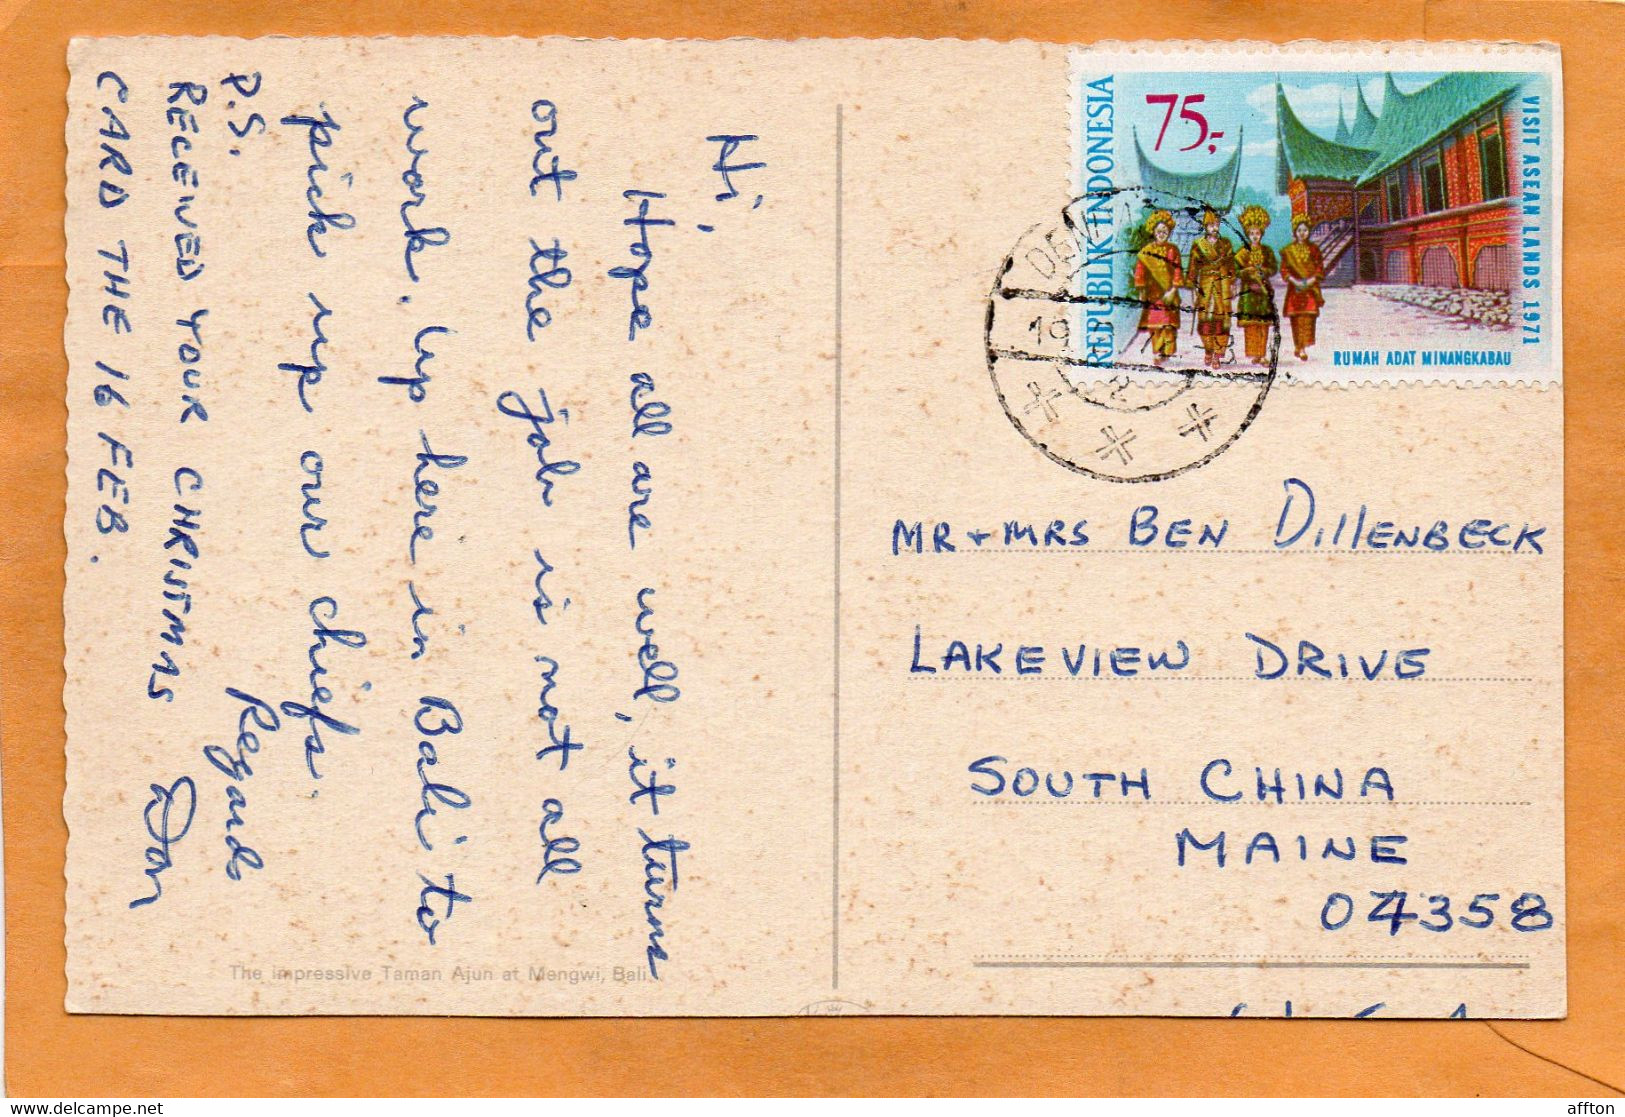 Hi,
Hope all are well, it turns
out the job is not all
work. Up here in Bali to
pick up our chiefs.
Regards
Don
P.S.
RECEIVED YOUR CHRISTMAS
CARD THE 16 FEB.
The impressive Taman Ajun at Mengwi, Bali.
REPUBLIK INDONESIA
75,-
VISIT ASEAN LANDS 1971
RUMAH ADAT MINANGKABAU
MR + MRS BEN DillENBECK
LAKEVIEW DRIVE
SOUTH CHINA
MAINE
04358
affton